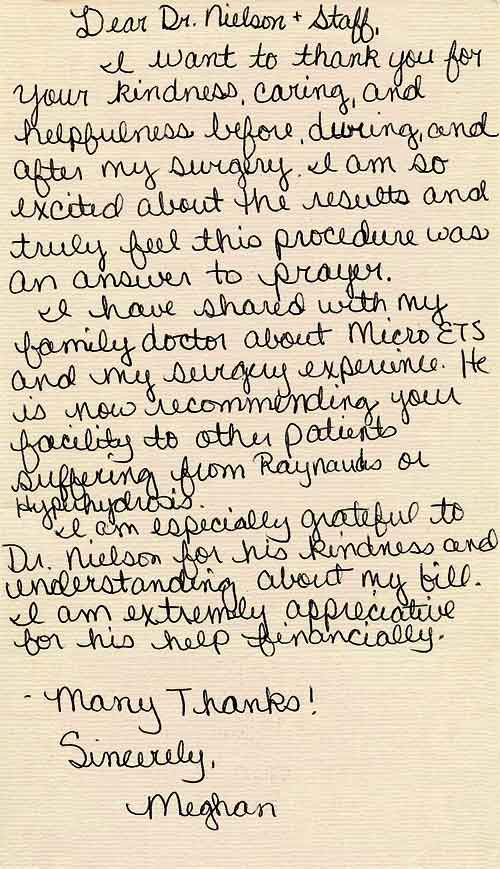 Dear Dr. Nielson + Staff,
I want to thank you for
your kindness, caring, and
helpfulness before, during, and
after my surgery. I am so
excited about the results and
truly feel this procedure was
an answer to prayer.
I have shared with my
family doctor about Micro ETS
and my surgery experience. He
is now recommending your
facility to other patients
suffering from Raynauds or
Hyperhydrosis.
I am especially grateful to
Dr. Nielson for his kindness and
understanding about my bill.
I am extremely appreciative
for his help financially.
- Many Thanks!
Sincerely,
Meghan